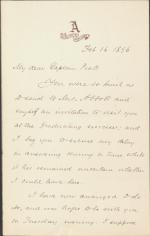 A
Feb 16 1896
My dear Captain Pratt
You were so kind as
to send to Mrs. Abbott and
myself an invitation to visit you
at the Graduating exercises; and
I beg you to excuse my delay
in answering owing to time while
it has remained uncertain whether
I could leave here.
I have now arranged to do
so, and we hope to be with you
on Tuesday morning. I suppose